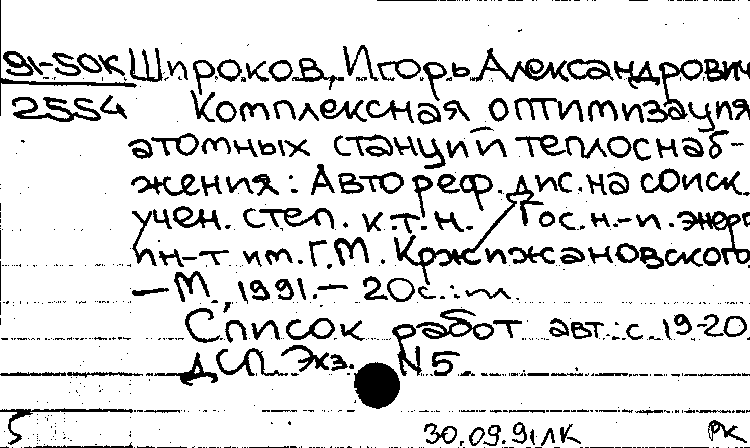 91-50К Широков, Игорь Александрович
2554 Комплексная оптимизация
атомных станций теплоснаб-
жения: Автореф. дис. на соиск.
учен. степ. к.т.н. Гос. н.-и. энерг.
ин-т им. Г.М. Кржижановского.
— М., 1991.— 20с.: ил.
Список работ авт.: с. 19-20.
ДСП. Экз. N5.
5 30.09.91 ЛК РК